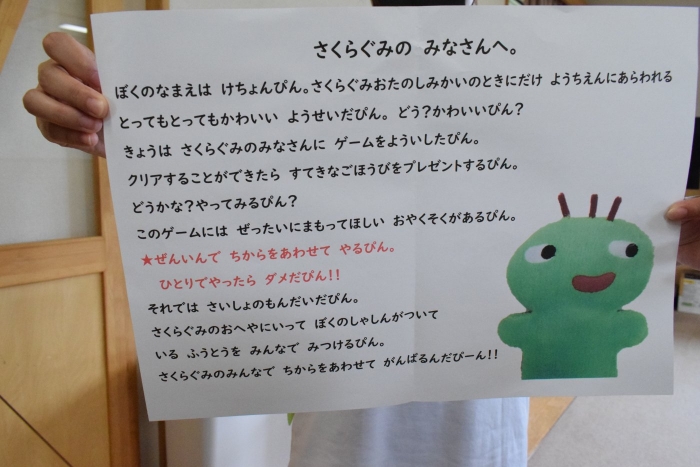 さくらぐみの みなさんへ。
ぼくのなまえは けちょんぴん。さくらぐみおたのしみかいのときにだけ ようちえんにあらわれる
とってもとってもかわいい ようせいだぴん。どう？かわいいぴん？
きょうは さくらぐみのみなさんに ゲームをよういしたぴん。
クリアすることができたら すてきなごほうびをプレゼントするぴん。
どうかな？やってみるぴん？
このゲームには ぜったいにまもってほしい おやくそくがあるぴん。
★ぜんいんで ちからをあわせて やるぴん。
ひとりでやったら ダメだぴん！！
それでは さいしょのもんだいだぴん。
さくらぐみのおへやにいって ぼくのしゃしんがついて
いる ふうとうを みんなで みつけるぴん。
さくらぐみのみんなで ちからをあわせて がんばるんだぴーん！！